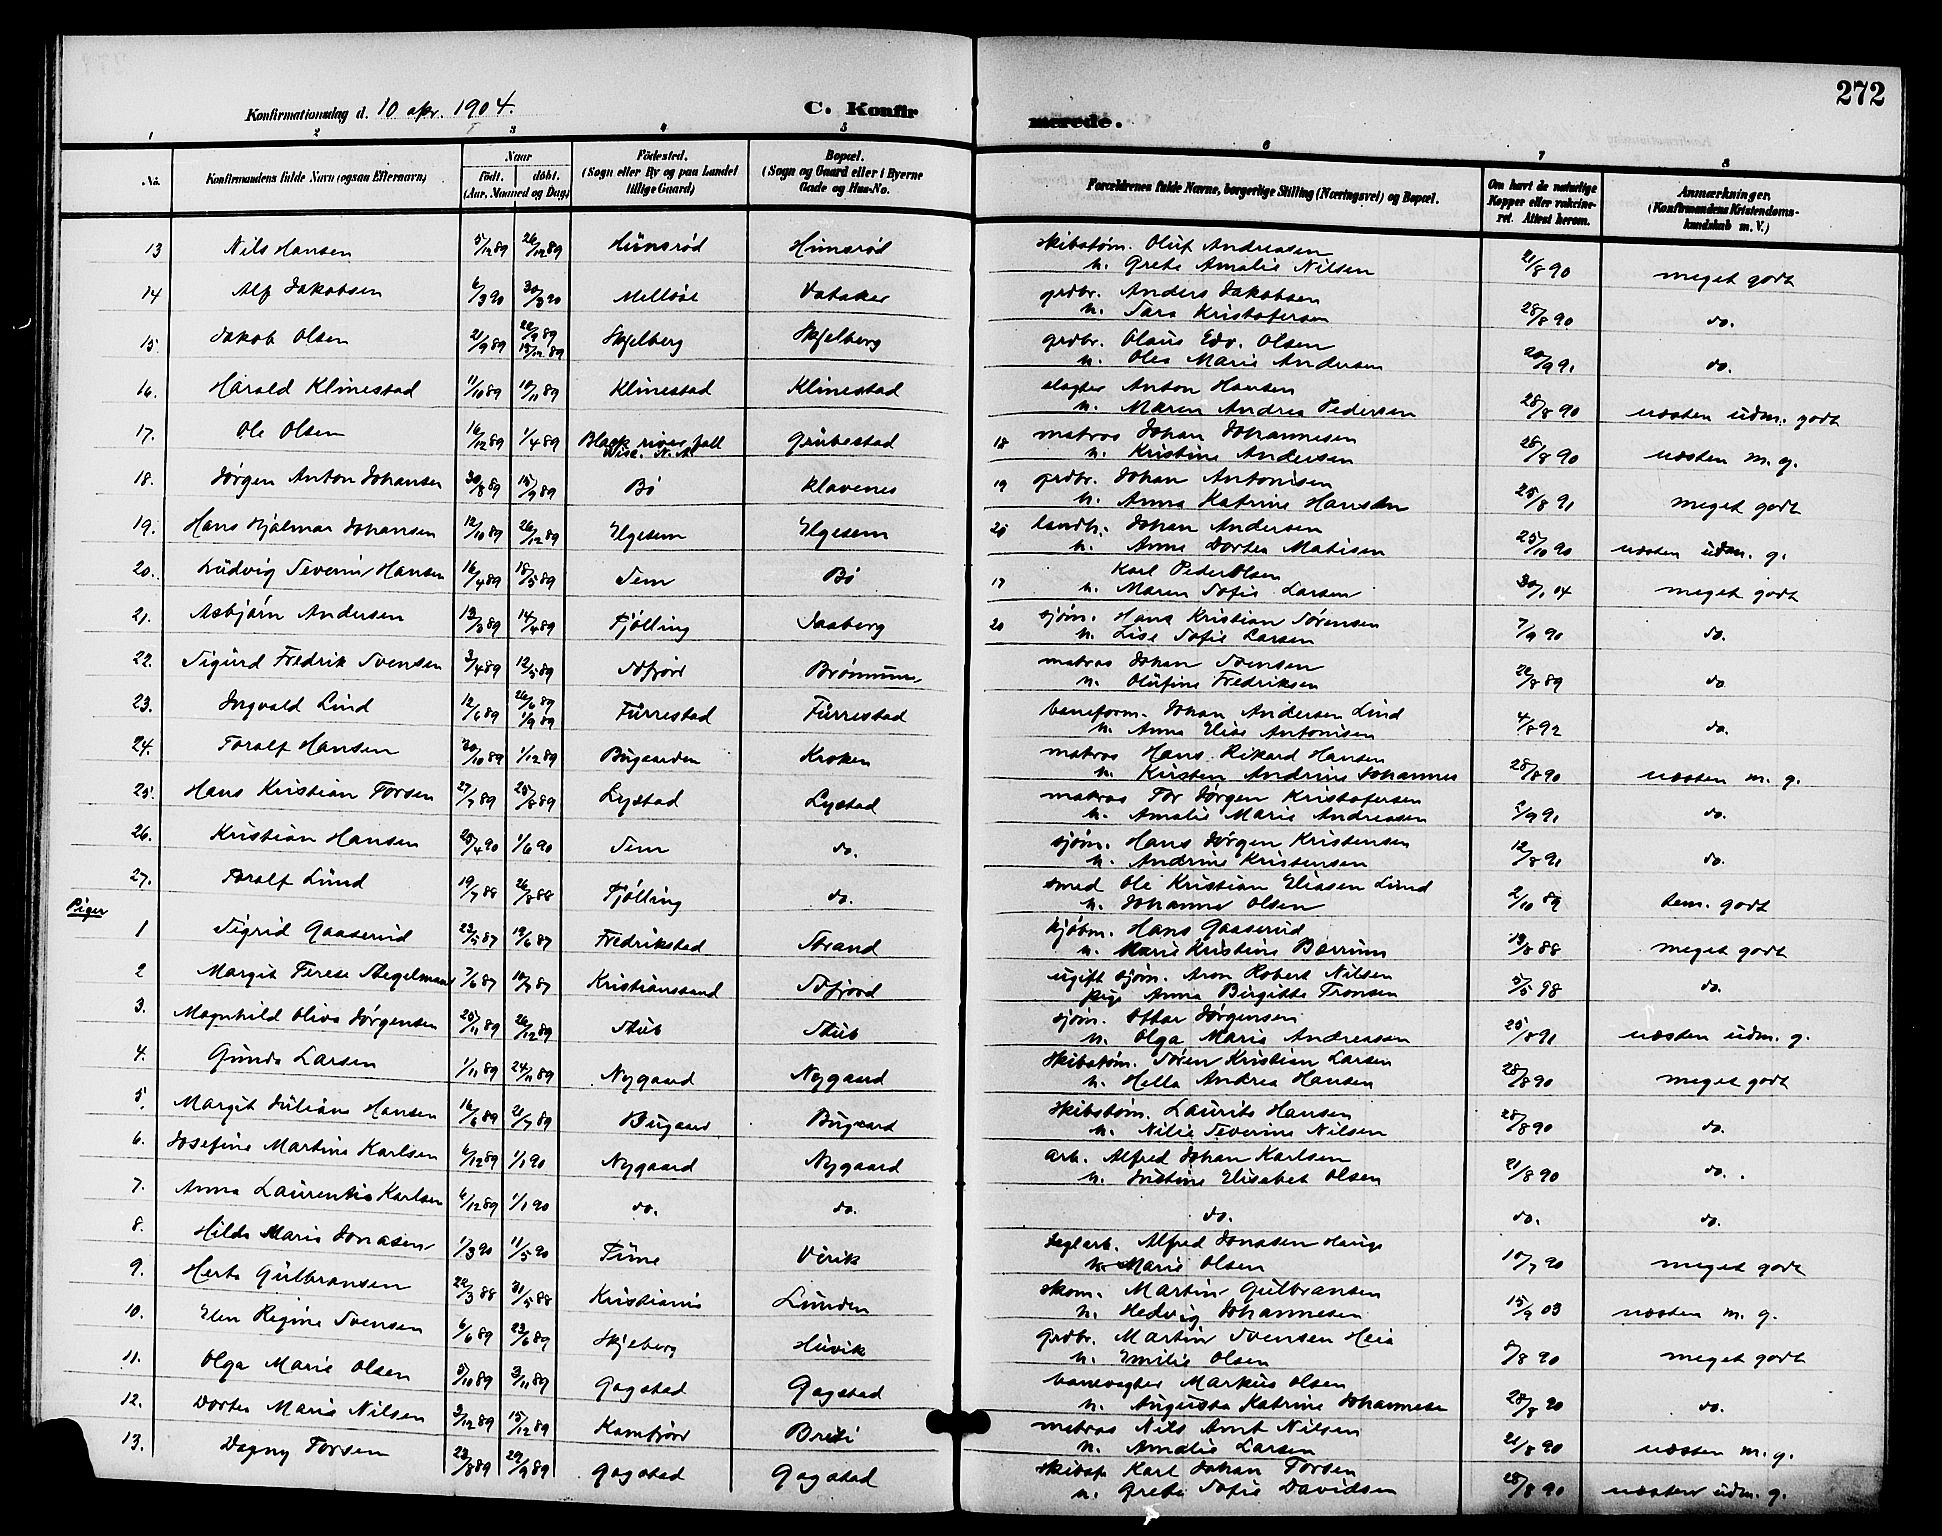 272
Konfirmationsdag d. 10 apr. 1904.
C. Konfirmerede.
1 2 3 4 5 6 7 8
No. Konfirmandens fulde Navn (ogsaa Efternavn) Naar födt. döbt. (Aar, Maaned og Dag) Födested. (Sogn eller By og paa Landet tillige Gaard) Bopæl. (Sogn og Gaard eller i Byerne Gade og Hus-No. Forældrenes fulde Navne, borgerlige Stilling (Næringsvei) og Bopæl. Om havt de naturlige Kopper eller vakcineret. Attest herom. Anmærkninger. (Konfirmandens Kristendomskundskab m. V.)
13 Nils Hansen 5/12 89 26/12 89 Hünsrød Hünsrød skibstøm. Oluf Andreasen
h. Grete Amalie Nilsen 21/8 90 meget godt
14 Alf Jakobsen 6/3 90 30/3 90 Melløse Vataker grdbr. Anders Jakobsen
h. Sara Kristofersen 28/8 90 do.
15 Jakob Olsen 21/9 89 22/9 89 15/12 89 Skjelberg Skjelberg grdbr. Olaus Edv. Olsen
h. Olea Marie Andersen 20/9 91 do.
16. Harald Klinestad 11/10 89 10/11 89 Klinestad Klinestad slagter Anton Hansen
h. Maren Andrea Pedersen 28/8 90 næsten udm. godt
17. Ole Olsen 16/12 89 1/4 89 Black river fall Wisc. N.A. Grübestad 18 matros Johan Johannesen
h. Kristine Andersen 28/8 90 næsten m. g.
18. Jørgen Anton Johansen 30/8 89 15/9 89 Bø Klavenes 19 grdbr. Johan Antonisen
h. Anna Katrine Hansen 25/8 91 meget godt
19. Hans Hjalmar Johansen 12/10 89 26/12 89 Elgesem Elgesem 20 landh. Johan Andersen
h. Anne Dortea Matisen 25/10 90 næsten udm. g.
20. Ludvig Severin Hansen 16/4 89 18/5 89 Sem Bø 17 Karl Peder Olsen
h. Maren Sofie Larsen 30/1 04 meget godt
21. Asbjørn Andersen 13/3 89 14/4 89 Tjølling Saaberg 20 sjøm. Hans Kristian Sørensen
h. Lise Sofie Larsen 7/9 90 do.
22. Sigurd Fredrik Svensen 3/4 89 12/5 89 Sdfjord Brønnum matros Johan Svensen
h. Olufine Fredriksen 22/8 89 do
23. Ingvald Lind 12/6 89 26/6 89 1/9 89 Fürrestad Fürrestad baneform. Johan Andersen Lind
h. Anna Elise Antonisen 4/8 92 do.
24. Toralf Hansen 30/10 89 1/12 89 Bugaarden Kroken matros Hans Rikard Hansen
h. Kirsten Andrine Johannes 28/8 90 næsten m. g.
25. Hans Kristian Torsen 27/7 89 25/8 89 Lystad Lystad matros Tor Jørgen Kristofersen
h. Amalie Marie Andreasen 2/9 91 do.
26. Kristian Hansen 20/4 90 1/6 90 Sem do. sjøm. Hans Jørgen Kristensen
h. Andrine Kristensen 12/8 91 do.
27. Toralf Lund 19/7 88 26/8 88 Tjølling do. smed Ole Kristian Eliasen Lund
h. Johanne Olsen 2/10 89 tem. godt
Piger
1 Sigrid Gaaserud 23/5 87 19/6 87 Fredrikstad Strand kjøbm. Hans Gaaserud
h. Marie Kristine Barrum 13/8 88 meget godt
2 Margit Terese Stegelmann 7/6 87 10/7 87 Kristianssand Sdfjord ugift sjøm. Aron Robert Nilsen
pige Anna Birgitte Tronsen 5/5 98 do.
3. Magnhild Oliva Jørgensen 25/11 89 26/12 89 Stub Stub sjøm. Ottar Jørgensen
h. Olga Marie Andreasen 25/8 91 næsten udm. g.
4. Gunda Larsen 1/11 89 24/11 89 Nygaard Nygaard skibstøm. Søren Kristian Larsen
h. Hella Andrea Hansen 28/8 90 meget godt
5. Margit Juliane Hansen 16/6 89 21/7 89 Bugaard Bugaard skibstøm. Laurits Hansen
h. Nilie Severine Nilsen 28/8 90 do.
6. Josefine Martine Karlsen 6/12 89 1/1 90 Nygaard Nygaard arb. Alfred Johan Karlsen
h. Justine Elisabet Olsen 21/8 90 do.
7. Anna Laurentia Karlsen 6/12 89 1/1 90 do. do. do. do. do.
8. Hilda Marie Jonasen 1/3 90 11/5 90 Tüne Virik teglarb. Alfred Jonasen Hauge
h. Marie Olsen 10/7 90 meget godt
9. Herta Gulbransen 22/3 88 31/5 88 Kristiania Lunden skom. Martin Gulbransen
h. Hedvig Johannesen 15/9 03 næsten m. g.
10. Elen Regine Svensen 6/6 89 23/6 89 Skjeberg Hüvik grdbr. Martin Svensen Heia
h. Emilie Olsen 8/8 90 meget godt
11. Olga Marie Olsen 5/10 89 3/11 89 Gogstad Gogstad banevogter Markus Olsen
h. Augusta Katrine Johannese 28/8 90 do.
12. Dortea Marie Nilsen 3/12 89 15/12 89 Kamfjord Breili matros Nils Arnt Nilsen
h. Amalie Larsen 21/8 90 næsten m. g.
13. Dagny Torsen 23/8 89 29/9 89 Gogstad Gogstad skibsf. Karl Johan Torsen
h. Grete Sofie Davidsen 28/8 90 næsten udm. g.